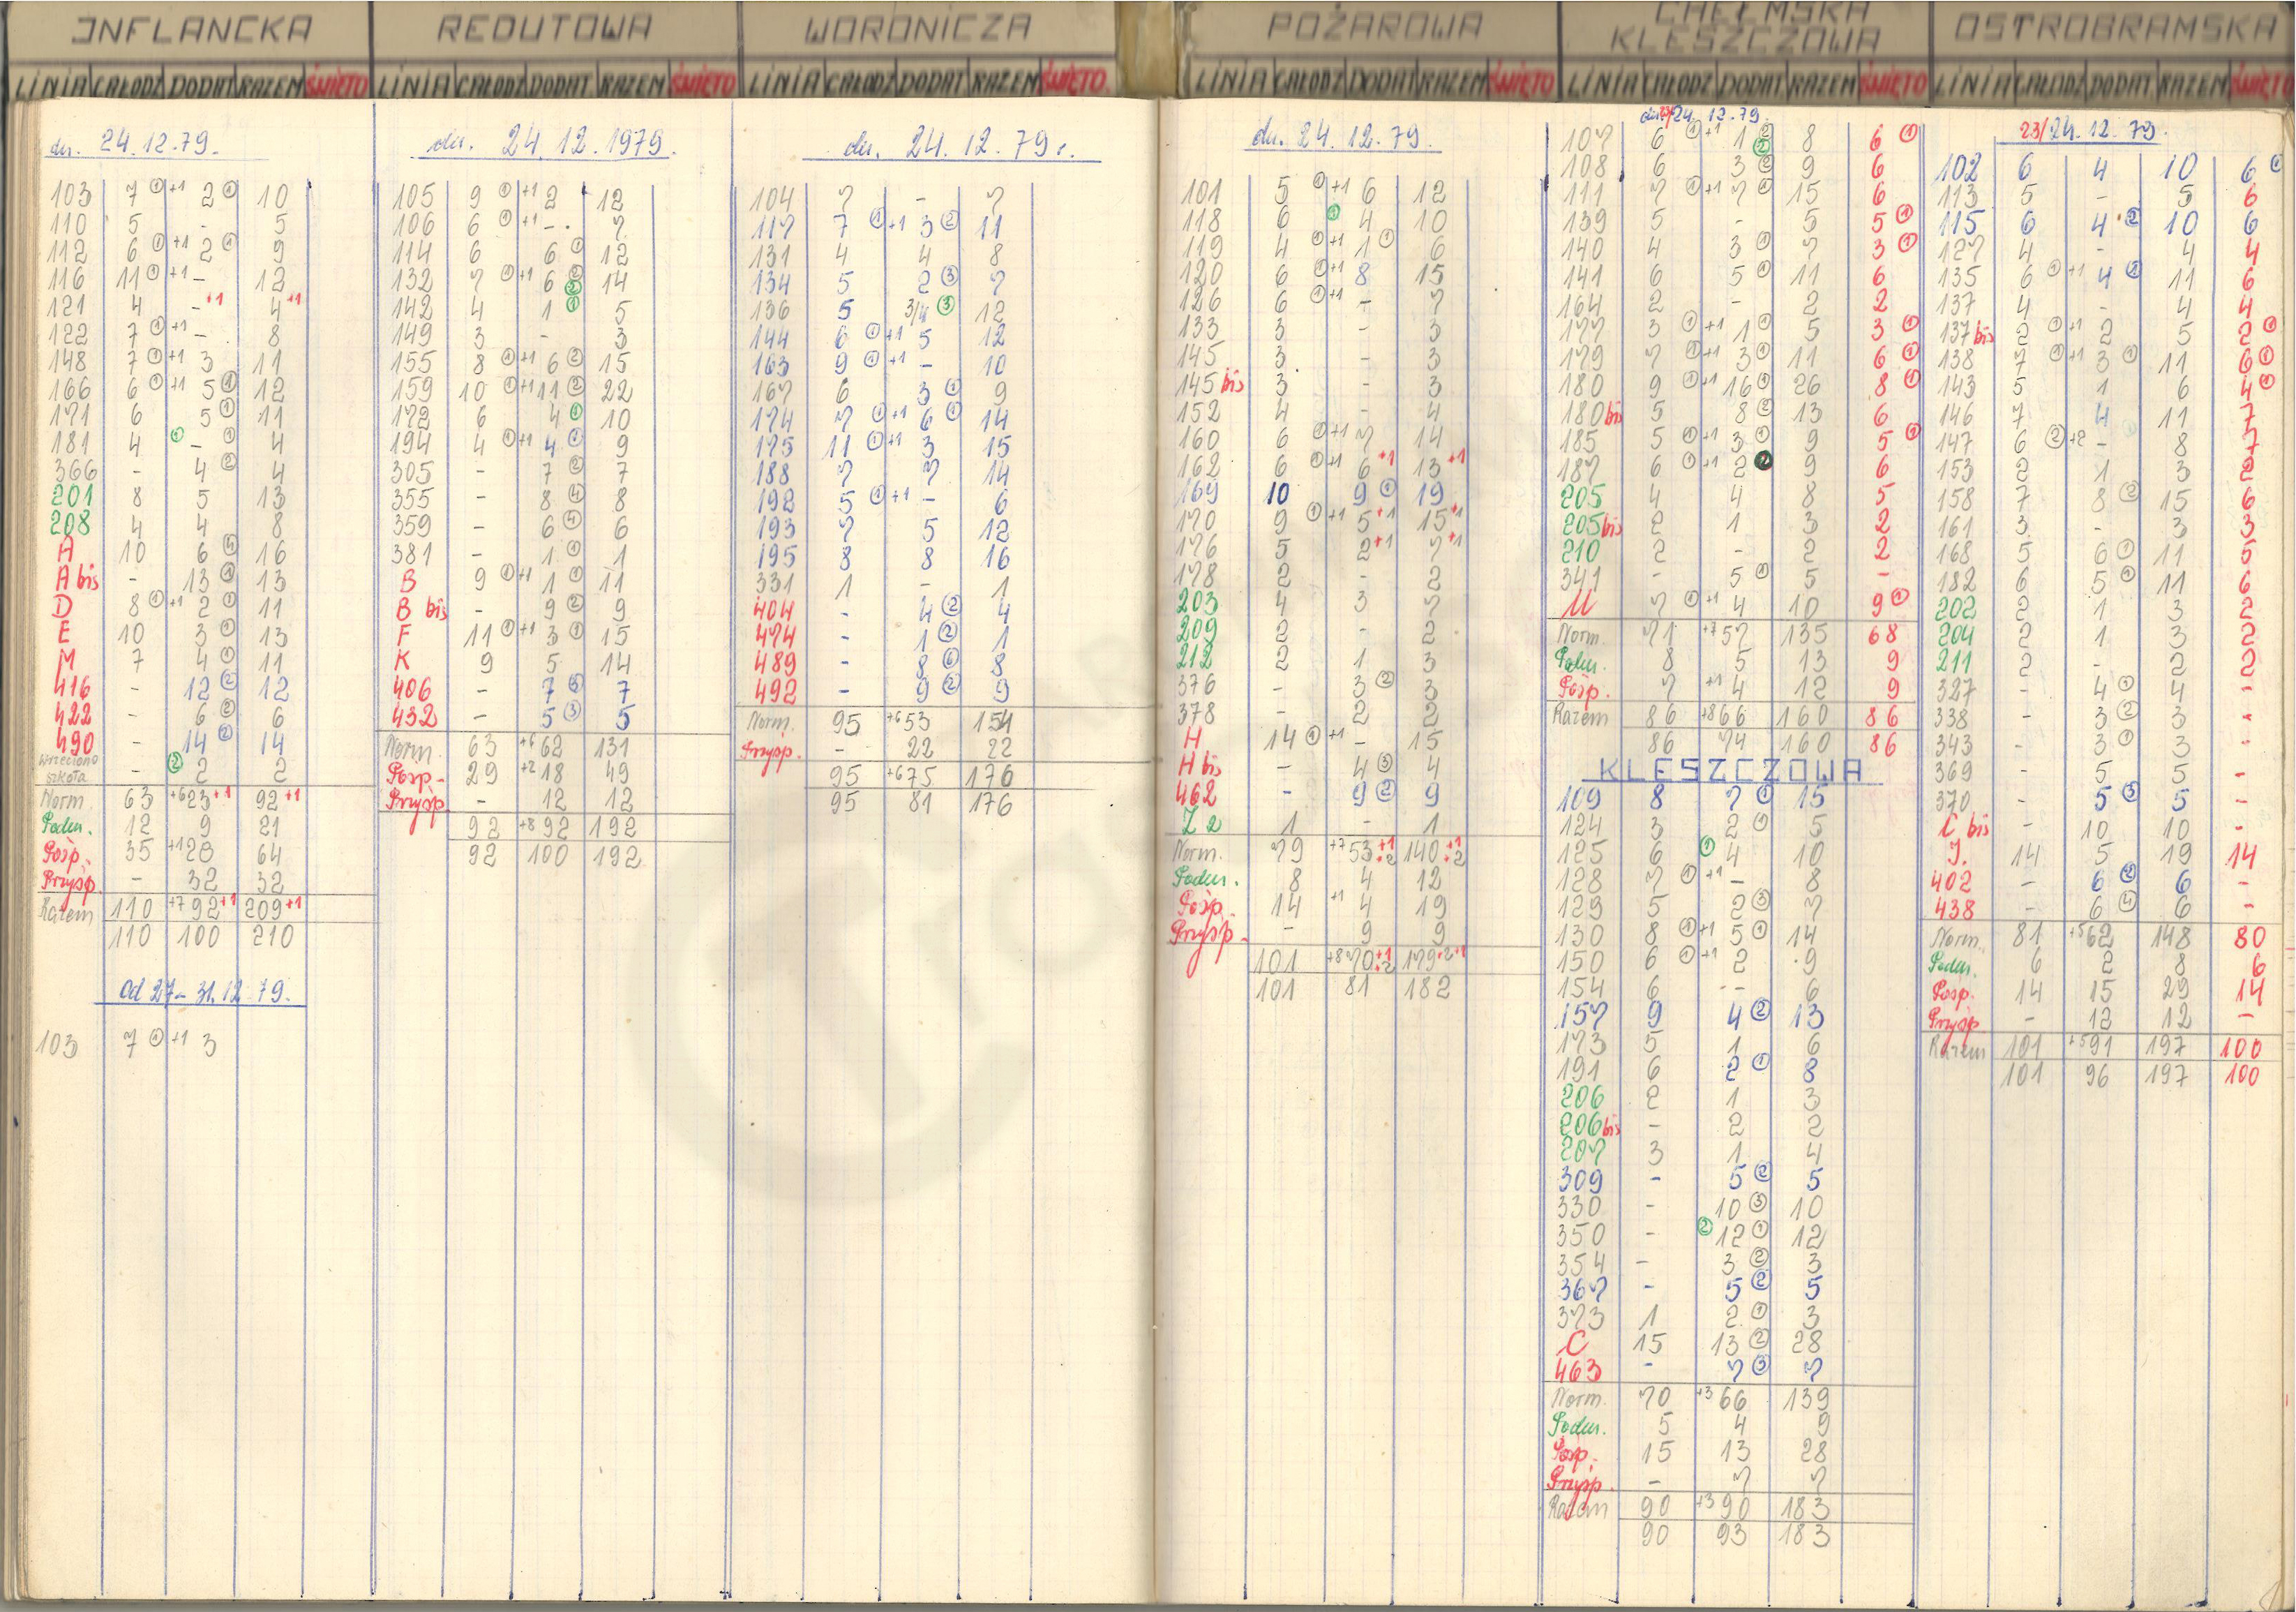 INFLANCKA
LINIA CAŁODZ DODAT. RAZEM ŚWIĘTO
dn. 24.12.79.
103 7 ① +1 2 ① 10
110 5 - 5
112 6 ① +1 2 ① 9
116 11 ① +1 - 12
121 4 - +1 4 +1
122 7 ① +1 - 8
148 7 ① +1 3 11
166 6 ① +1 5 ① 12
171 6 5 ① 11
181 4 ① - ① 4
366 - 4 ② 4
201 8 5 13
208 4 4 8
A 10 6 ④ 16
A bis - 13 ① 13
D 8 ① +1 2 ① 11
E 10 3 ① 13
M 7 4 ① 11
416 - 12 ② 12
422 - 6 ② 6
490 - 14 ② 14
Wrzeciono
szkoła - ② 2 2
Norm. 63 +6 23 +1 92 +1
Podm. 12 9 21
Posp. 35 +1 28 64
Przysp. - 32 32
Razem 110 +7 92 +1 209 +1
110 100 210
Od 27-31.12.79.
103 7 ① +1 3
REDUTOWA
LINIA CAŁODZ DODAT. RAZEM ŚWIĘTO
dn. 24.12.1979.
105 9 ① +1 2 12
106 6 ① +1 - 7
114 6 6 ① 12
132 7 ① +1 6 ② ② 14
142 4 1 ① 5
149 3 - 3
155 8 ① +1 6 ② 15
159 10 ① +1 11 ② 22
172 6 4 ① 10
194 4 ① +1 4 ① 9
305 - 7 ② 7
355 - 8 ④ 8
359 - 6 ④ 6
381 - 1 ① 1
B 9 ① +1 1 ① 11
B bis - 9 ② 9
F 11 ① +1 3 ① 15
K 9 5 14
406 - 7 ③ 7
432 - 5 ③ 5
Norm. 63 +6 62 131
Posp. 29 +2 18 49
Przysp. - 12 12
92 +8 92 192
92 100 192
WORONICZA
LINIA CAŁODZ DODAT. RAZEM ŚWIĘTO.
dn. 24.12.79r.
104 7 - 7
117 7 ① +1 3 ② 11
131 4 4 8
134 5 2 ③ 7
136 5 3/4 ③ 12
144 6 ① +1 5 12
163 9 ① +1 - 10
167 6 3 ① 9
174 7 ① +1 6 ① 14
175 11 ① +1 3 15
188 7 7 14
192 5 ① +1 - 6
193 7 5 12
195 8 8 16
331 1 - 1
404 - 4 ② 4
474 - 1 ② 1
489 - 8 ⑥ 8
492 - 9 ② 9
Norm. 95 +6 53 154
Przysp. - 22 22
95 +6 75 176
95 81 176
POŻAROWA
LINIA CAŁODZ DODAT. RAZEM ŚWIĘTO
dn. 24.12.79.
101 5 ① +1 6 12
118 6 ① 4 10
119 4 ① +1 1 ① 6
120 6 ① +1 8 15
126 6 ① +1 - 7
133 3 - 3
145 3 - 3
145 bis 3 - 3
152 4 - 4
160 6 ① +1 7 14
162 6 ① +1 6 +1 13 +1
169 10 9 ① 19
170 9 ① +1 5 +1 15 +1
176 5 2 +1 7 +1
178 2 - 2
203 4 3 7
209 2 - 2
212 2 1 3
376 - 3 ② 3
378 - 2 2
H 14 ① +1 - 15
H bis - 4 ③ 4
462 - 9 ② 9
Za 1 - 1
Norm. 79 +7 53 +1 +2 140 +1 +2
Podm. 8 4 12
Posp. 14 +1 4 19
Przysp. - 9 9
101 +8 70 +1 +2 179 +2 +1
101 81 182
CHEŁMSKA
KLESZCZOWA
LINIA CAŁODZ DODAT. RAZEM ŚWIĘTO
dn. 23/24.12.79.
107 6 ① +1 1 ② 8 6 ①
108 6 ② 3 ② 9 6
111 7 ① +1 7 ① 15 6
139 5 - 5 5 ①
140 4 3 ① 7 3 ①
141 6 5 ① 11 6
164 2 - 2 2
177 3 ① +1 1 ① 5 3 ①
179 7 ① +1 3 ① 11 6 ①
180 9 ① +1 16 ① 26 8 ①
180 bis 5 8 ② 13 6
185 5 ① +1 3 ① 9 5 ①
187 6 ① +1 2 ② 9 6
205 4 4 8 5
205 bis 2 1 3 2
210 2 - 2 2
341 - 5 ① 5 -
U 7 ① +1 4 10 9 ①
Norm. 71 +7 57 135 68
Podm. 8 5 13 9
Posp. 7 +1 4 12 9
Razem 86 +8 66 160 86
86 74 160 86
KLESZCZOWA
109 8 7 ① 15
124 3 2 ① 5
125 6 ① 4 10
128 7 ① +1 - 8
129 5 2 ③ 7
130 8 ① +1 5 ① 14
150 6 ① +1 2 9
154 6 - 6
157 9 4 ② 13
173 5 1 6
191 6 2 ① 8
206 2 1 3
206 bis - 2 2
207 3 1 4
309 - 5 ② 5
330 - 10 ③ 10
350 - ② 12 ① 12
354 - 3 ② 3
367 - 5 ② 5
373 1 2 ① 3
C 15 13 ② 28
463 - 7 ③ 7
Norm. 70 +3 66 139
Podm. 5 4 9
Posp. 15 13 28
Przysp. - 7 7
Razem 90 +3 90 183
90 93 183
OSTROBRAMSKA
LINIA CAŁODZ DODAT. RAZEM ŚWIĘTO
23/24.12.79.
102 6 4 10 6 ①
113 5 - 5 6
115 6 4 ② 10 6
127 4 - 4 4
135 6 ① +1 4 ① 11 6
137 4 - 4 4
137 bis 2 ① +1 2 5 2 ①
138 7 ① +1 3 ① 11 6 ①
143 5 1 6 4 ①
146 7 4 11 7
147 6 ② +2 - 8 7
153 2 1 3 2
158 7 8 ② 15 6
161 3 - 3 3
168 5 6 ① 11 5
182 6 5 ① 11 6
202 2 1 3 2
204 2 1 3 2
211 2 - 2 2
327 - 4 ① 4 -
338 - 3 ② 3 -
343 - 3 ① 3 -
369 - 5 5 -
370 - 5 ③ 5 -
C bis - 10 10 -
J. 14 5 19 14
402 - 6 ② 6 -
438 - 6 ④ 6 -
Norm. 81 +5 62 148 80
Podm. 6 2 8 6
Posp. 14 15 29 14
Przysp. - 12 12 -
Razem 101 +5 91 197 100
101 96 197 100